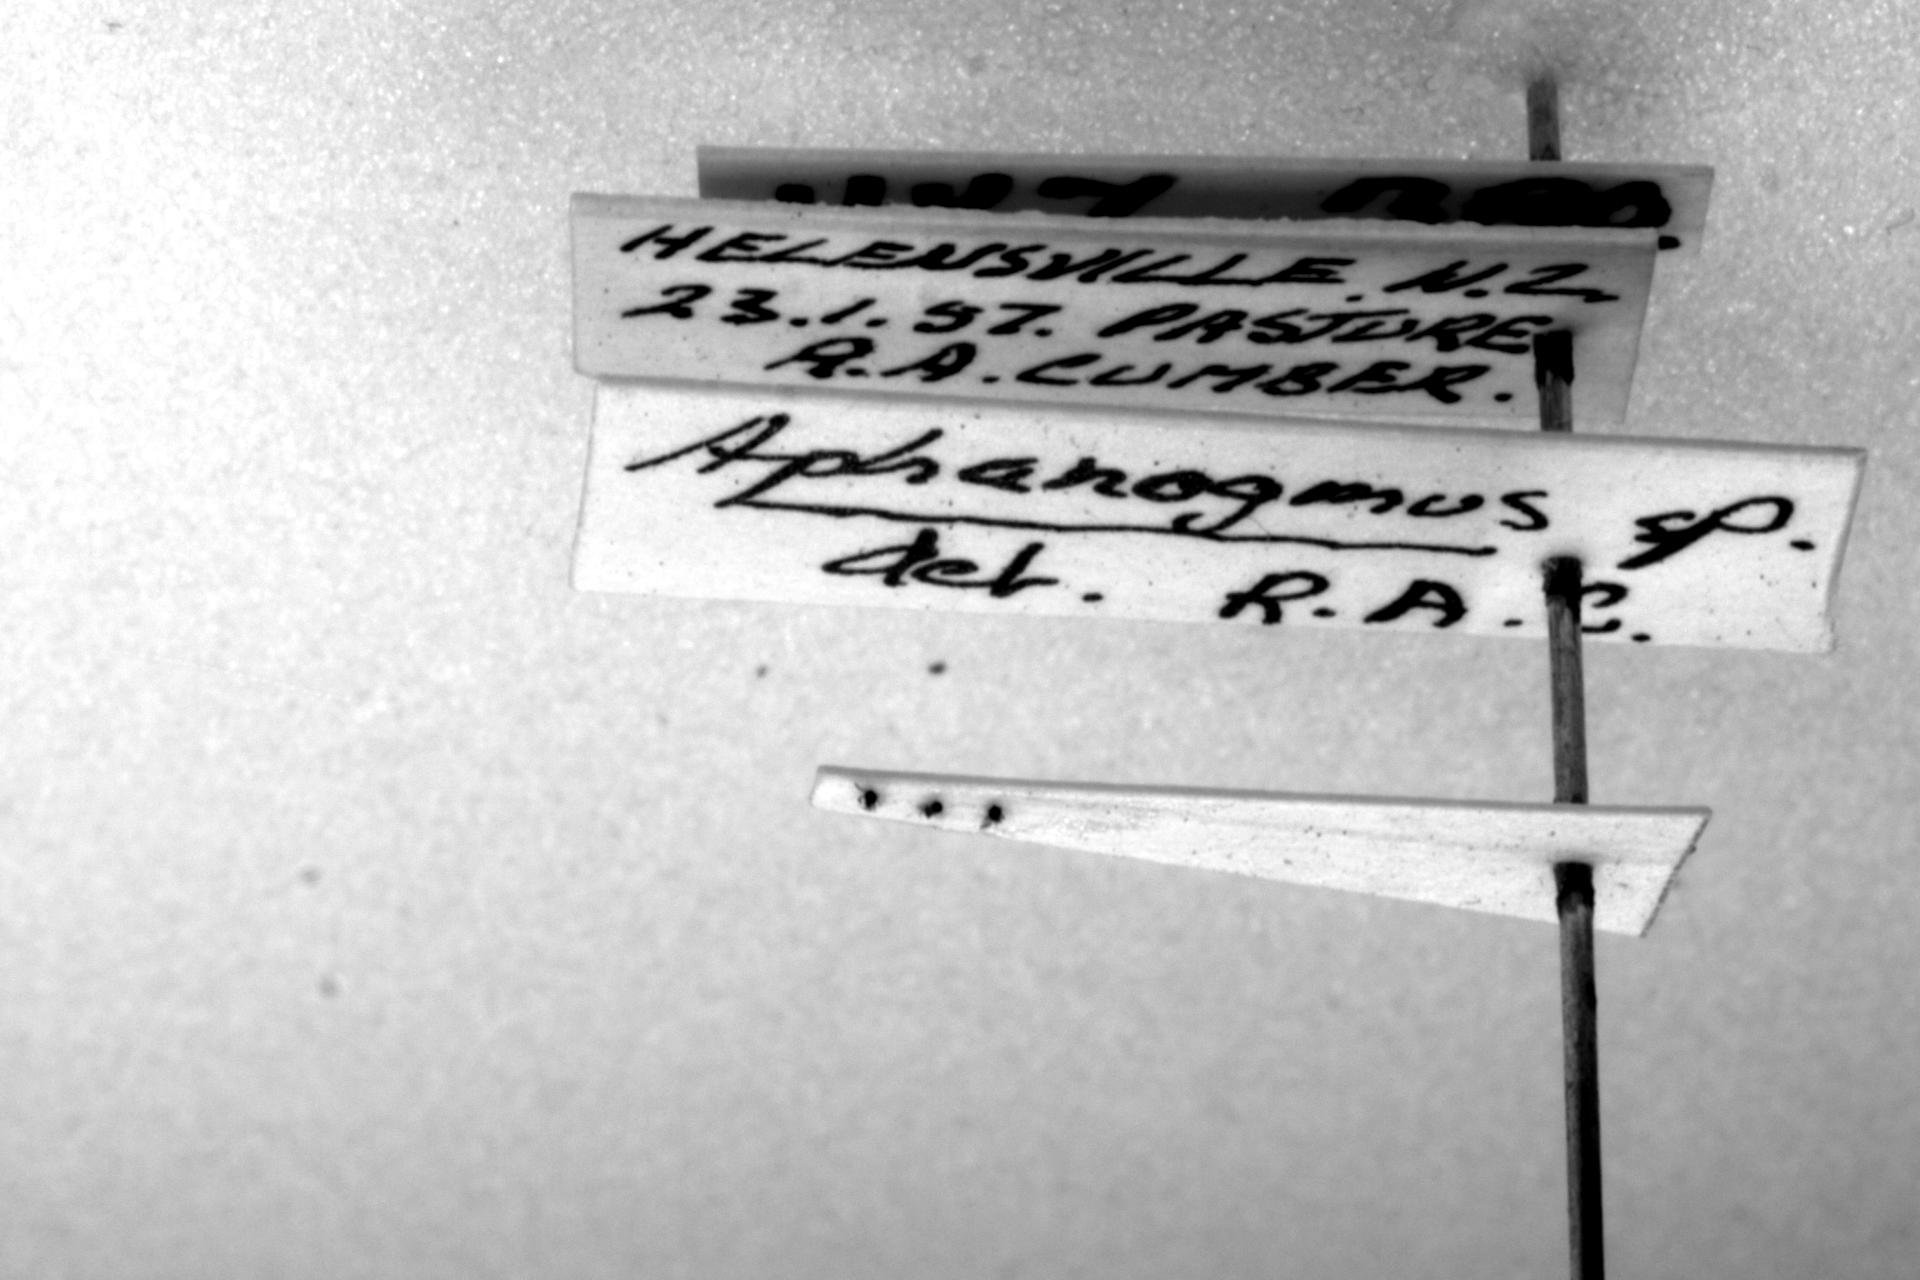 HELENSVILLE. N.Z.
23.1.57. PASTURE
R.A. CUMBER.
Aphanogmus sp.
det. R.A.C.